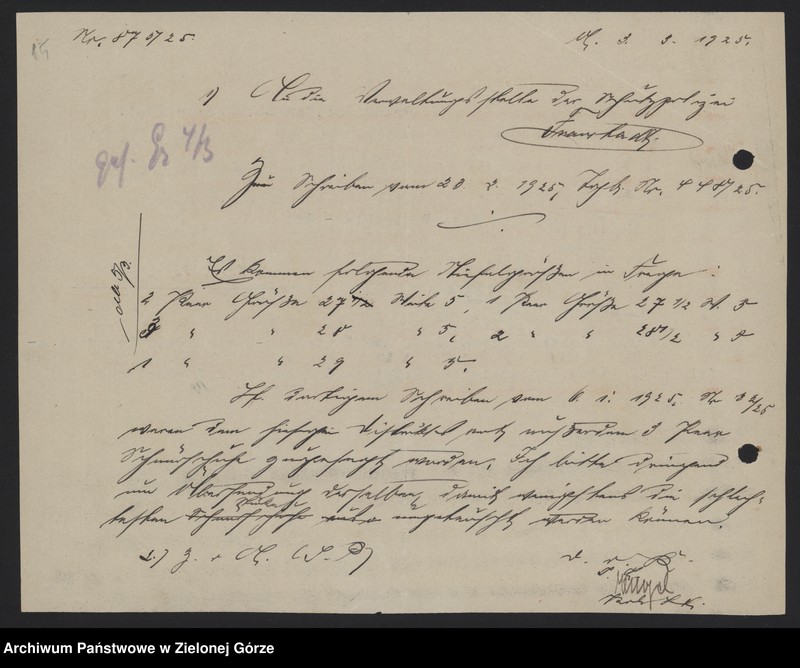 Nr. 87 0/25.
M. 3. 3. 1925.
1) An die Verwaltungsstelle der Schutzpolizei
Fraustadt.
gef. 4/3
Zum Schreiben vom 28. 2. 1925, Tgb. Nr. 448/25.
Es kommen folgende Stiefelgrößen in Frage:
2 Paar Größe 27 Weite 5, 1 Paar Größe 27 1/2 W. 5
" " 28 " 5, 2 " " 28 1/2 " 5
1 " " 29 " 5.
Lt. dortigem Schreiben vom 6. 1. 1925, Nr
waren dem hiesigen außerdem 3 Paar
Schnürschuhe zugesagt worden. Ich bitte dringend
um Übersendung derselben, damit wenigstens die schlech-
testen umgetauscht werden können.
2.) Z. d. A.
Archiwum Państwowe w Zielonej Górze